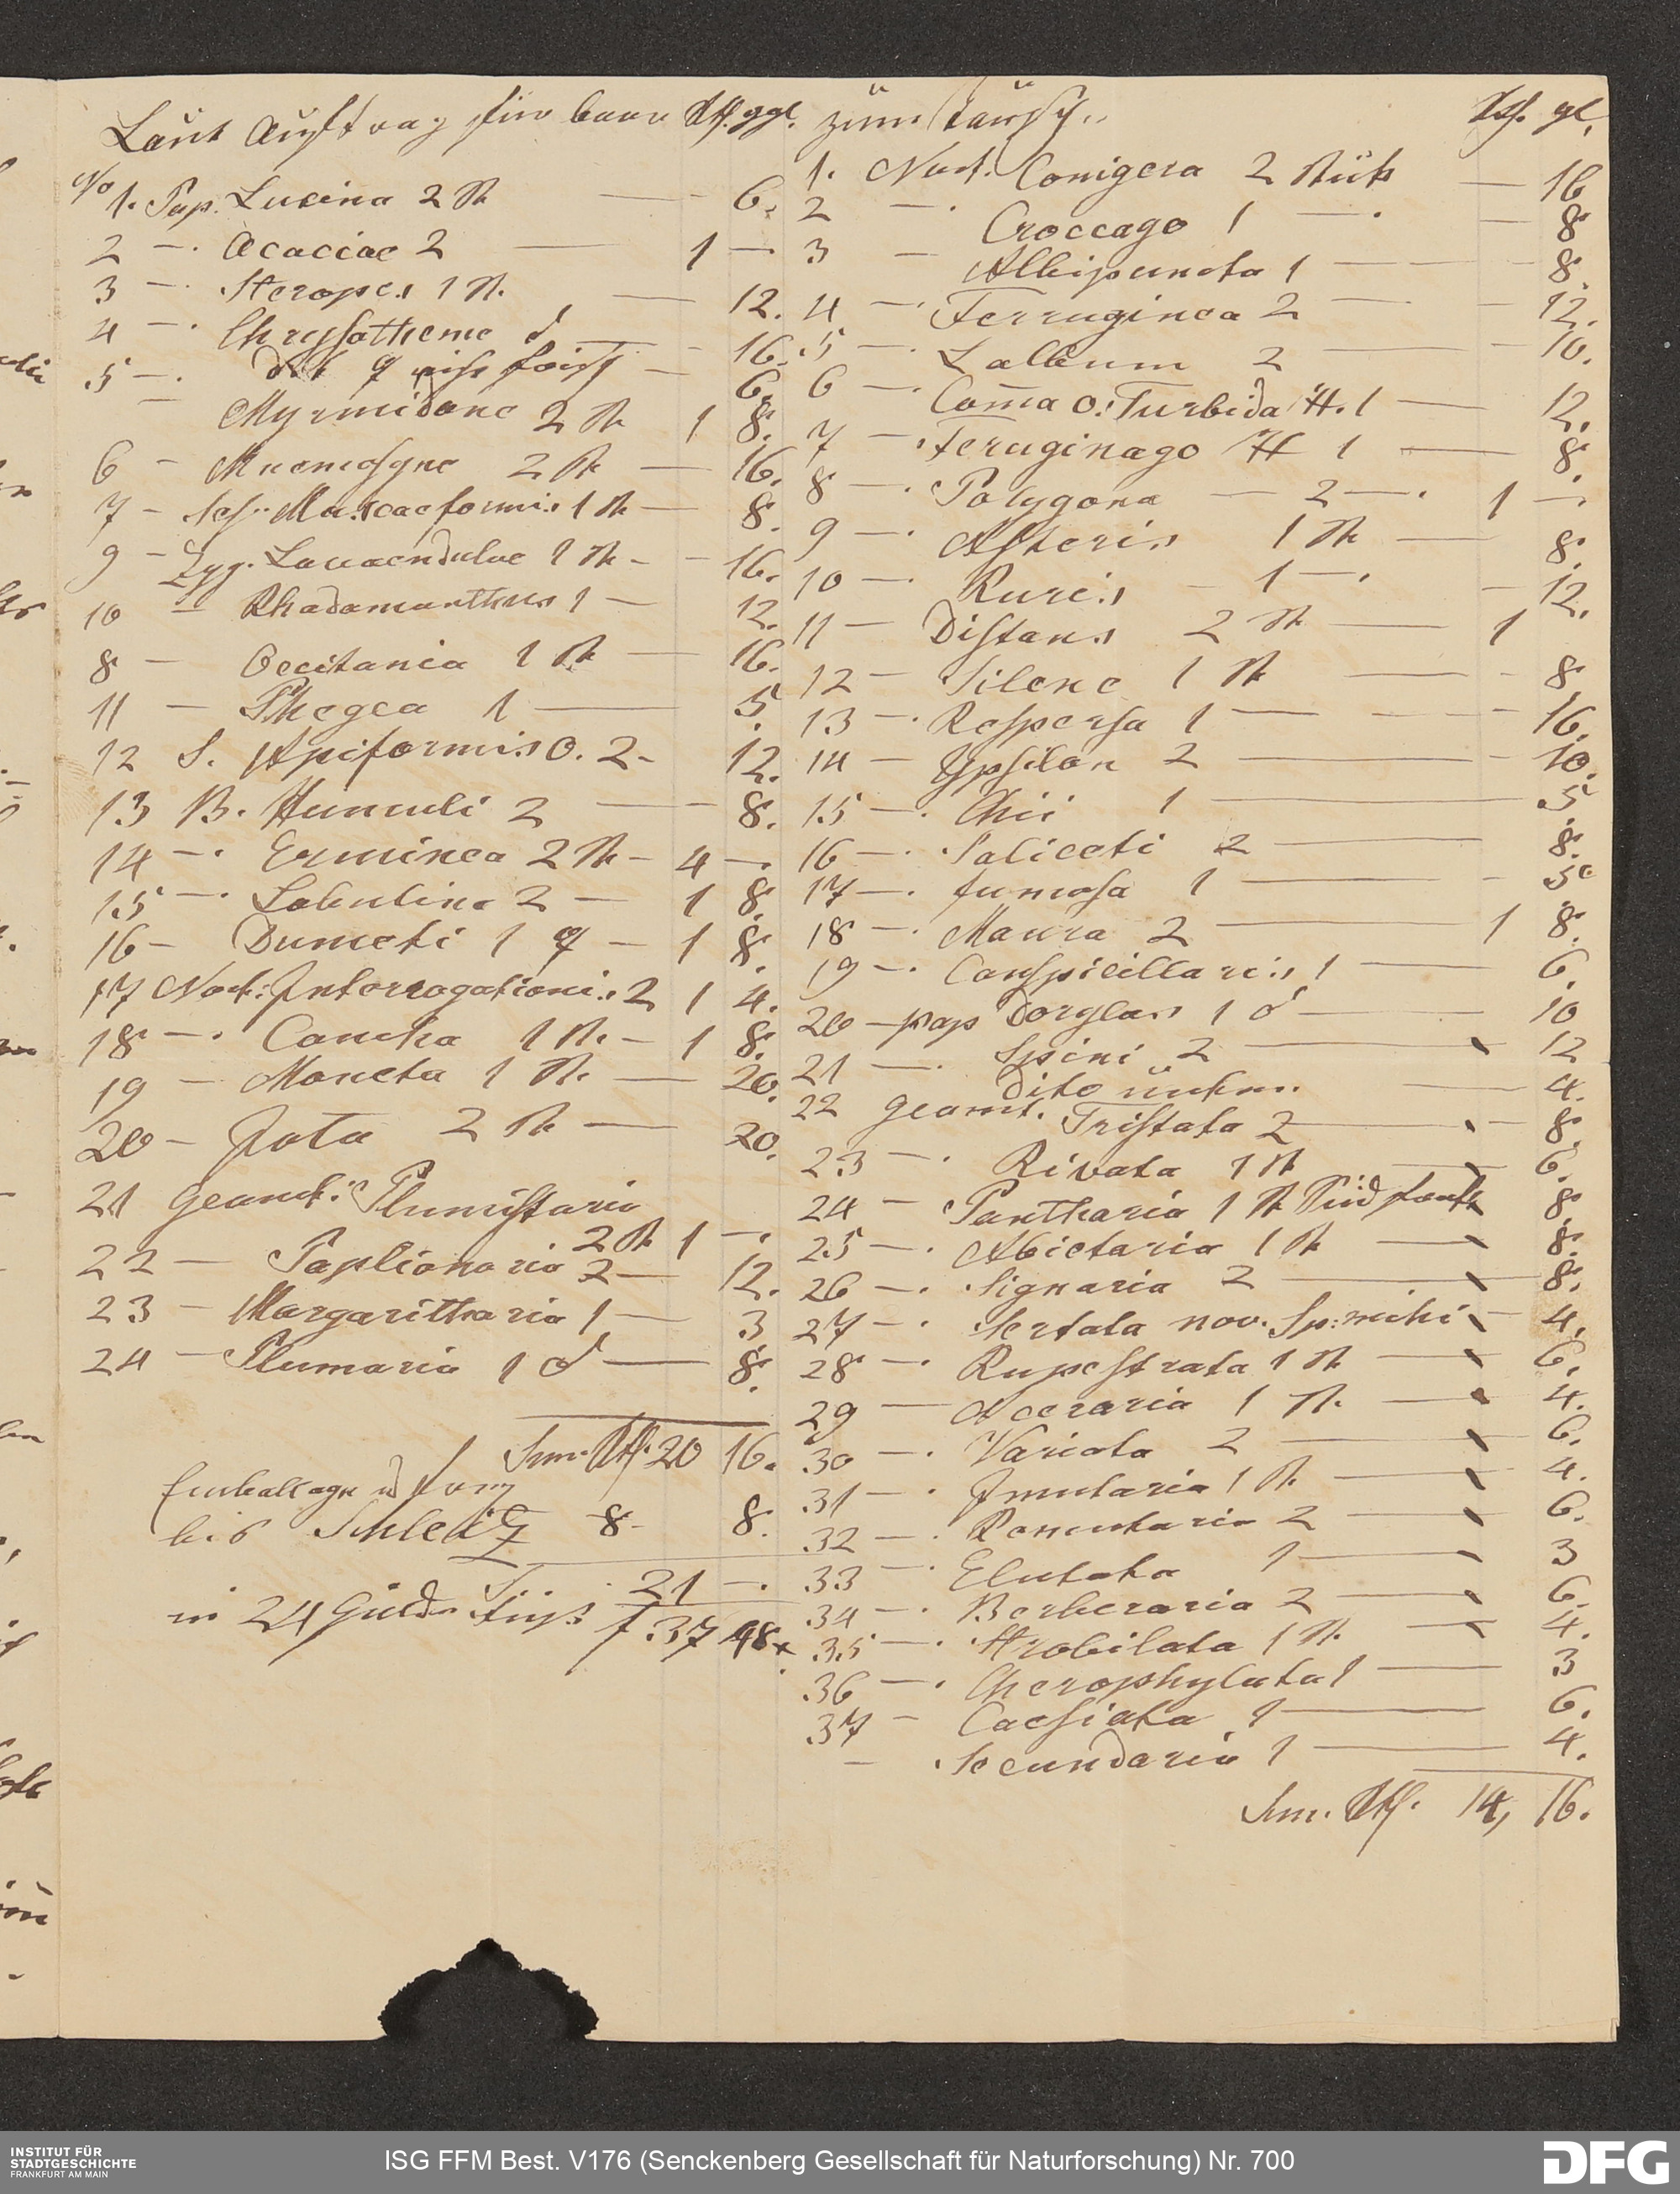 Laut Auftrag für baar Rth. ggl.
No 1. Pap. Lucina 2 St — 6.
2 —. Acaciae 2 — 1 —.
3 —. Steropes 1 St. — 12.
4 —. Chrysotheme ♂ — 16.
5 —. dito ♀ — 6.
— Myrmidone 2 St 1 8.
6 — Mnemosyne 2 St — 16.
7 — Ses. Muscaeformis 1 St — 8.
9 — Zyg. Lavaendulae 1 St — 16.
10 — Rhadamanthus 1 — 12.
8 — Occitania 1 St — 16.
11 — Phegea 1 — 5.
12 S. Apiformis O. 2 — 12.
13 B. Humuli 2 — 8.
14 —. Erminea 2 St — 4 —.
15 —. Lobulina 2 — 1 8.
16 — Dumeti 1 ♀ — 1 8.
17 Noct: Interrogationis 2 1 4.
18 —. Concha 1 St. — 1 8.
19 — Moneta 1 St. — 20.
20 — Jota 2 St — 20.
21 Geomt: Plumistaria
2 St 1 —.
22 — Paplionaria 2 — 12.
23 — Margarittharia 1 — 3
24 — Plumaria 1 ♂ — 8.
Sm. Rth. 20 16.
Emballage u
bis Schleitz 8 8.
21 —.
in 24 Gulden Fuß f 37 48x
zum tausch.. Rth. gl.
1. Noct. Conigera 2 Stük — 16
2 —. Croccago 1 —. — 8.
3 — Albipuncta 1 — 8.
4 —. Ferruginea 2 — 12.
5 —. L album 2 — 10.
6 —. Com̄a O: Turbida H. 1 — 12.
7 —. Feruginago H 1 — 8.
8 —. Polygona — 2 —. 1 —.
9 —. Asteris 1 St — 8.
10 —. Ruris — 1 —. — 12.
11 — Distans 2 St — 1
12 — Silene 1 St — 8.
13 —. Respersa 1 — 16.
14 — Ypsilon 2 — 10.
15 —. Chii 1 — 5
16 —. Saliceti 2 — 8.
17 —. fumosa 1 — 5
18 —. Maura 2 — 1 8.
19 —. Conspicillaris 1 — 6.
20 — pap Dorylas 1 ♂ — 10
21 —. Spini 2 — 12
dito — 4.
22 Geomt. Tristata 2 — 8.
23 —. Rivata 1 St — 6.
24 — Pantharia 1 St 8.
25 —. Abietaria 1 St — 8.
26 —. Signaria 2 — 8.
27 —. Sertata nov. Sp: mihi — 4.
28 —. Rupestrata 1 St — 6.
29 — Aceraria 1 St. — 4.
30 —. Variata 2 — 6.
31 —. Imutaria 1 St — 4.
32 —. Remutaria 2 — 6.
33 —. Elutata 1 — 3
34 —. Berberaria 2 — 6.
35 —. Strobilata 1 St. — 4.
36 —. Cherophylata 1 — 3
37 — Caesiata 1 — 6.
— Secundaria 1 — 4.
Sm. Rth. 14, 16.
INSTITUT FÜR
STADTGESCHICHTE
FRANKFURT AM MAIN
ISG FFM Best. V176 (Senckenberg Gesellschaft für Naturforschung) Nr. 700
DFG